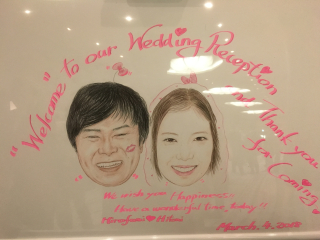 "Welcome to our Wedding Reception
and Thank you
for Coming"
We wish you Happiness
Have a wonderful time, today!!
March. 4. 2018